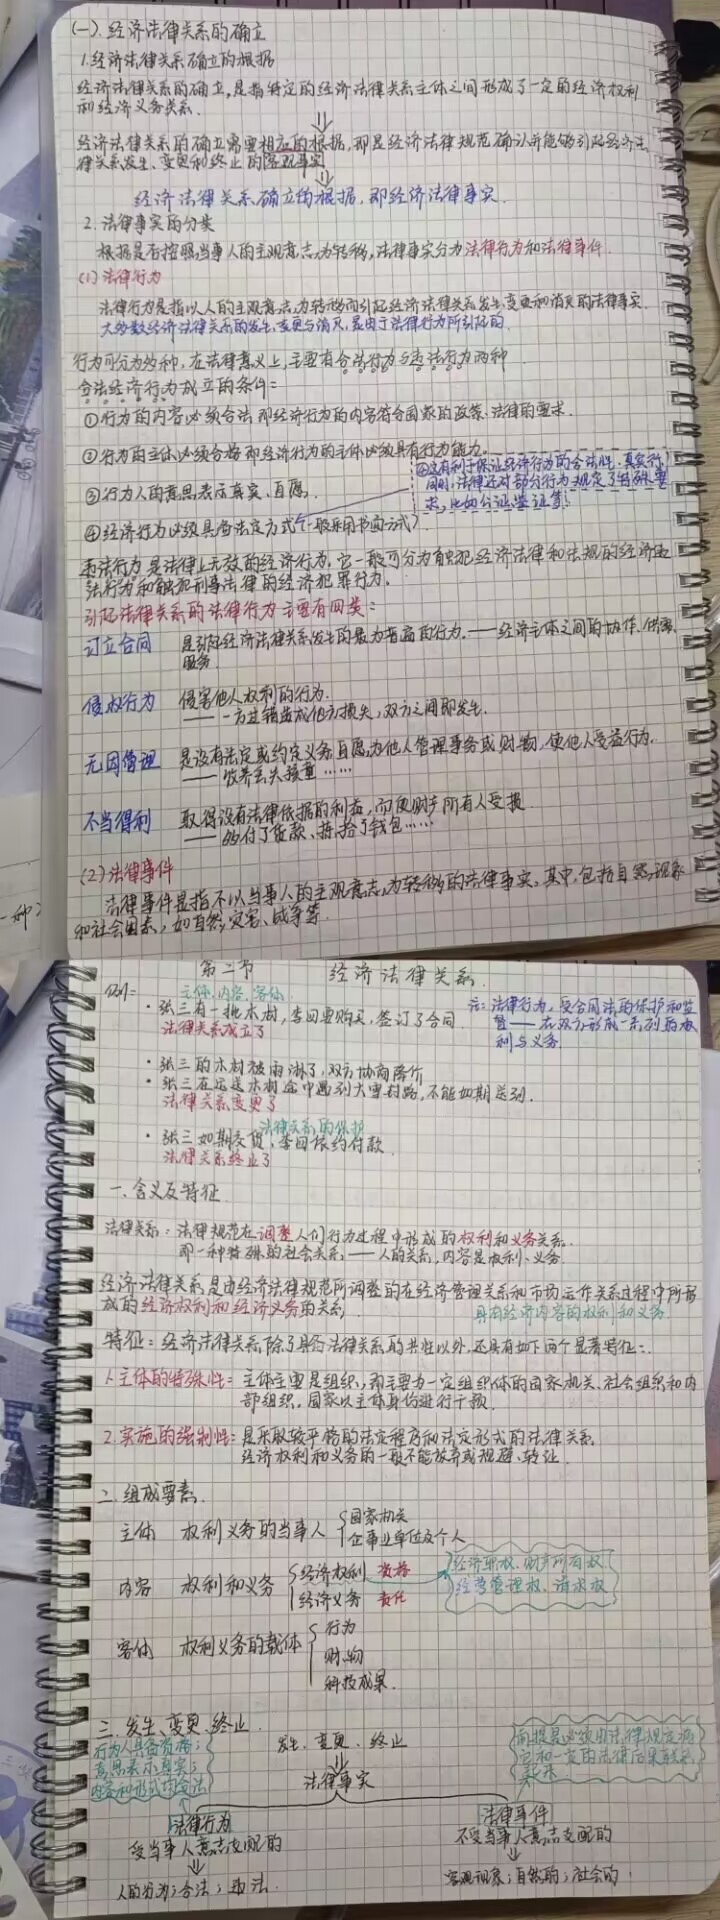 (一).经济法律关系的确立
1.经济法律关系确立的根据
经济法律关系的确立,是指特定的经济法律关系主体之间形成了一定的经济权利
和经济义务关系.
经济法律关系的确立需要相应的根据,即是经济法律规范确认并能够引起经济法
律关系发生、变更和终止的客观事实
经济法律关系确立的根据,即经济法律事实.
2.法律事实的分类
根据是否按照当事人的主观意志为转移,法律事实分为法律行为和法律事件.
(1)法律行为
法律行为是指以人的主观意志为转移而引起经济法律关系发生、变更和消灭的法律事实.
大多数经济法律关系的发生、变更与消灭,是由于法律行为所引起的.
行为可分为多种,在法律意义上,主要有合法行为与违法行为两种
合法经济行为成立的条件:
①行为的内容必须合法,即经济行为的内容符合国家的政策、法律的要求.
②行为的主体必须合格,即经济行为的主体必须具有行为能力.
③行为人的意思表示真实、自愿.
④这有利于保证经济行为的合法性、真实性,
同时,法律还对部分行为规定了特殊要
求,比如公证、鉴证等.
④经济行为必须具备法定方式(一般采用书面方式)
违法行为是法律上无效的经济行为.它一般可分为触犯经济法律和法规的经济违
法行为和触犯刑事法律的经济犯罪行为.
引起法律关系的法律行为主要有四类:
订立合同 是引起经济法律关系发生的最为普遍的行为.——经济主体之间的协作、供需、
服务.
侵权行为 侵害他人权利的行为.
——一方过错造成他方损失,双方之间即发生.
无因管理 是没有法定或约定义务,自愿为他人管理事务或财物,使他人受益行为.
——收养丢失孩童……
不当得利 取得没有法律依据的利益,而使财产所有人受损
——多付了货款、捡拾了钱包……
(2)法律事件
法律事件是指不以当事人的主观意志为转移的法律事实.其中,包括自然现象
和社会因素,如自然灾害、战争等.
第二节 经济法律关系.
例:
主体、内容、客体
·张三有一批木材,李四要购买,签订了合同
法律关系成立了
注:法律行为,受合同法的保护和监
督——在双方形成一系列的权
利与义务
·张三的木材被雨淋了,双方协商降价
·张三在运送木材途中遇到大雪封路,不能如期送到.
法律关系变更了
法律关系的保护
·张三如期交货,李四依约付款
法律关系终止了
一.含义及特征
法律关系:法律规范在调整人们行为过程中形成的权利和义务关系.
即一种特殊的社会关系——人的关系,内容是权利、义务.
经济法律关系,是由经济法律规范所调整的在经济管理关系和市场运作关系过程中所形
成的经济权利和经济义务的关系
具有经济内容的权利和义务
特征:经济法律关系除了具备法律关系的共性以外,还具有如下两个显著特征:.
1.主体的特殊性:主体主要是组织,即主要为一定组织体的国家机关、社会组织和内
部组织,国家以主体身份进行干预.
2.实施的强制性:是采取较严格的法定程序和法定形式的法律关系
经济权利和义务的一般不能放弃或规避、转让
二.组成要素.
主体 权利义务的当事人 国家机关
企事业单位及个人
内容 权利和义务 经济权利 资格
经济义务 责任
经济职权、财产所有权
经营管理权、请求权
客体 权利义务的载体 行为
财物
科技成果.
三.发生、变更、终止.
行为人具备资格;
意思表示真实;
内容和形式均合法
发生、变更、终止
法律事实
前提是必须由法律规定把
它和一定的法律后果联系
起来.
法律行为
受当事人意志支配的
人的行为;合法;违法.
法律事件
不受当事人意志支配的
客观现象;自然的;社会的